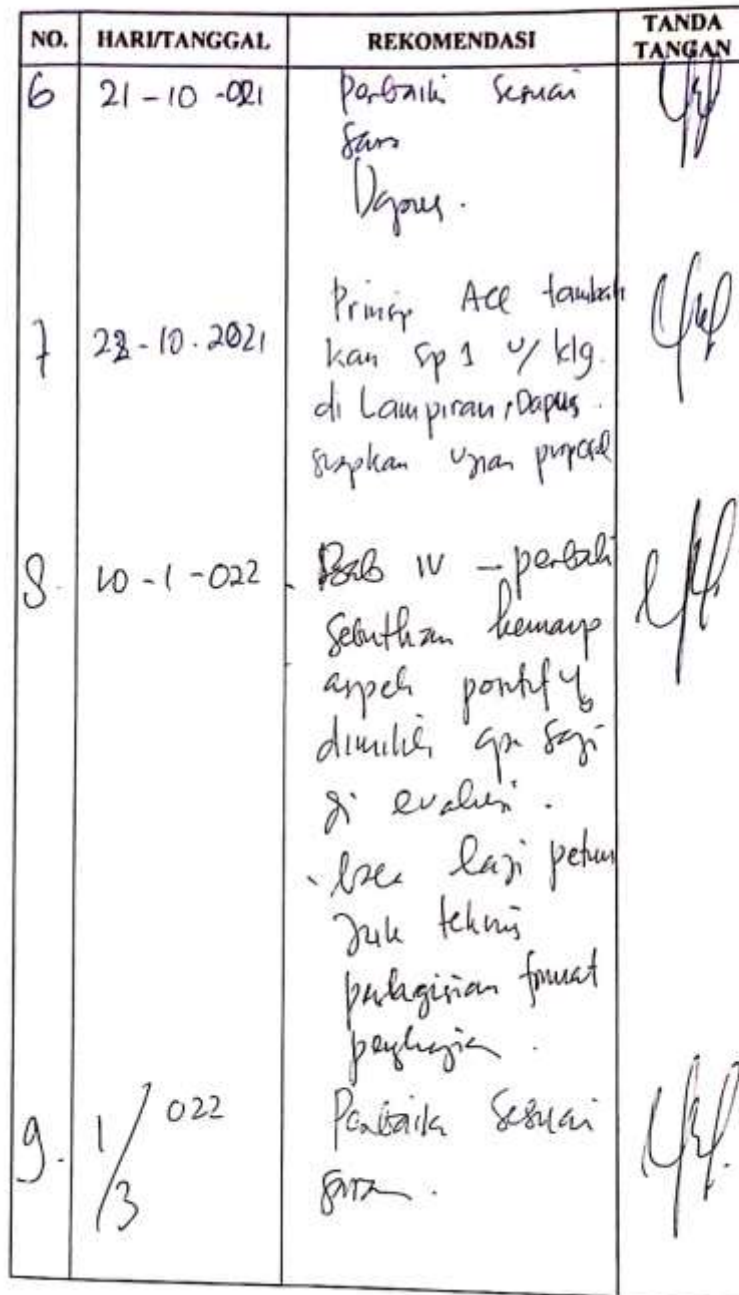 NO. HARI/TANGGAL REKOMENDASI TANDA TANGAN
6 21-10-021 Perbaiki sesuai
saran
Dapus.
7 22-10-2021 Prinsip ACC tambah
kan SP 1 u/ klg.
di Lampiran, Dapus.
siapkan ujian proposal
8. 10-1-022 Bab IV - perbaiki
Sebutkan kemamp
aspek positif yg
dimiliki apa saja
di evaluasi.
baca lagi petun
juk teknis
format
pengkajian.
9. 1/3 022 Perbaiki sesuai
saran.